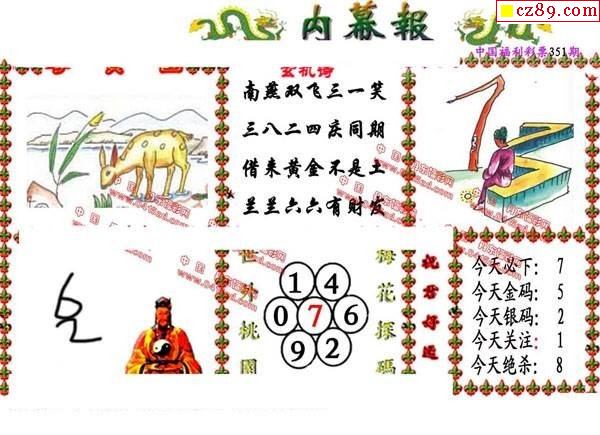 cz89.com
内幕報
中国福利彩票351期
玄机诗
南燕双飞三一笑
三八二四庆同期
借来黄金不是土
兰兰六六有财发
梅花探碼
祝君好运
1 4
0 7 6
9 2
今天必下: 7
今天金码: 5
今天银码: 2
今天关注: 1
今天绝杀: 8